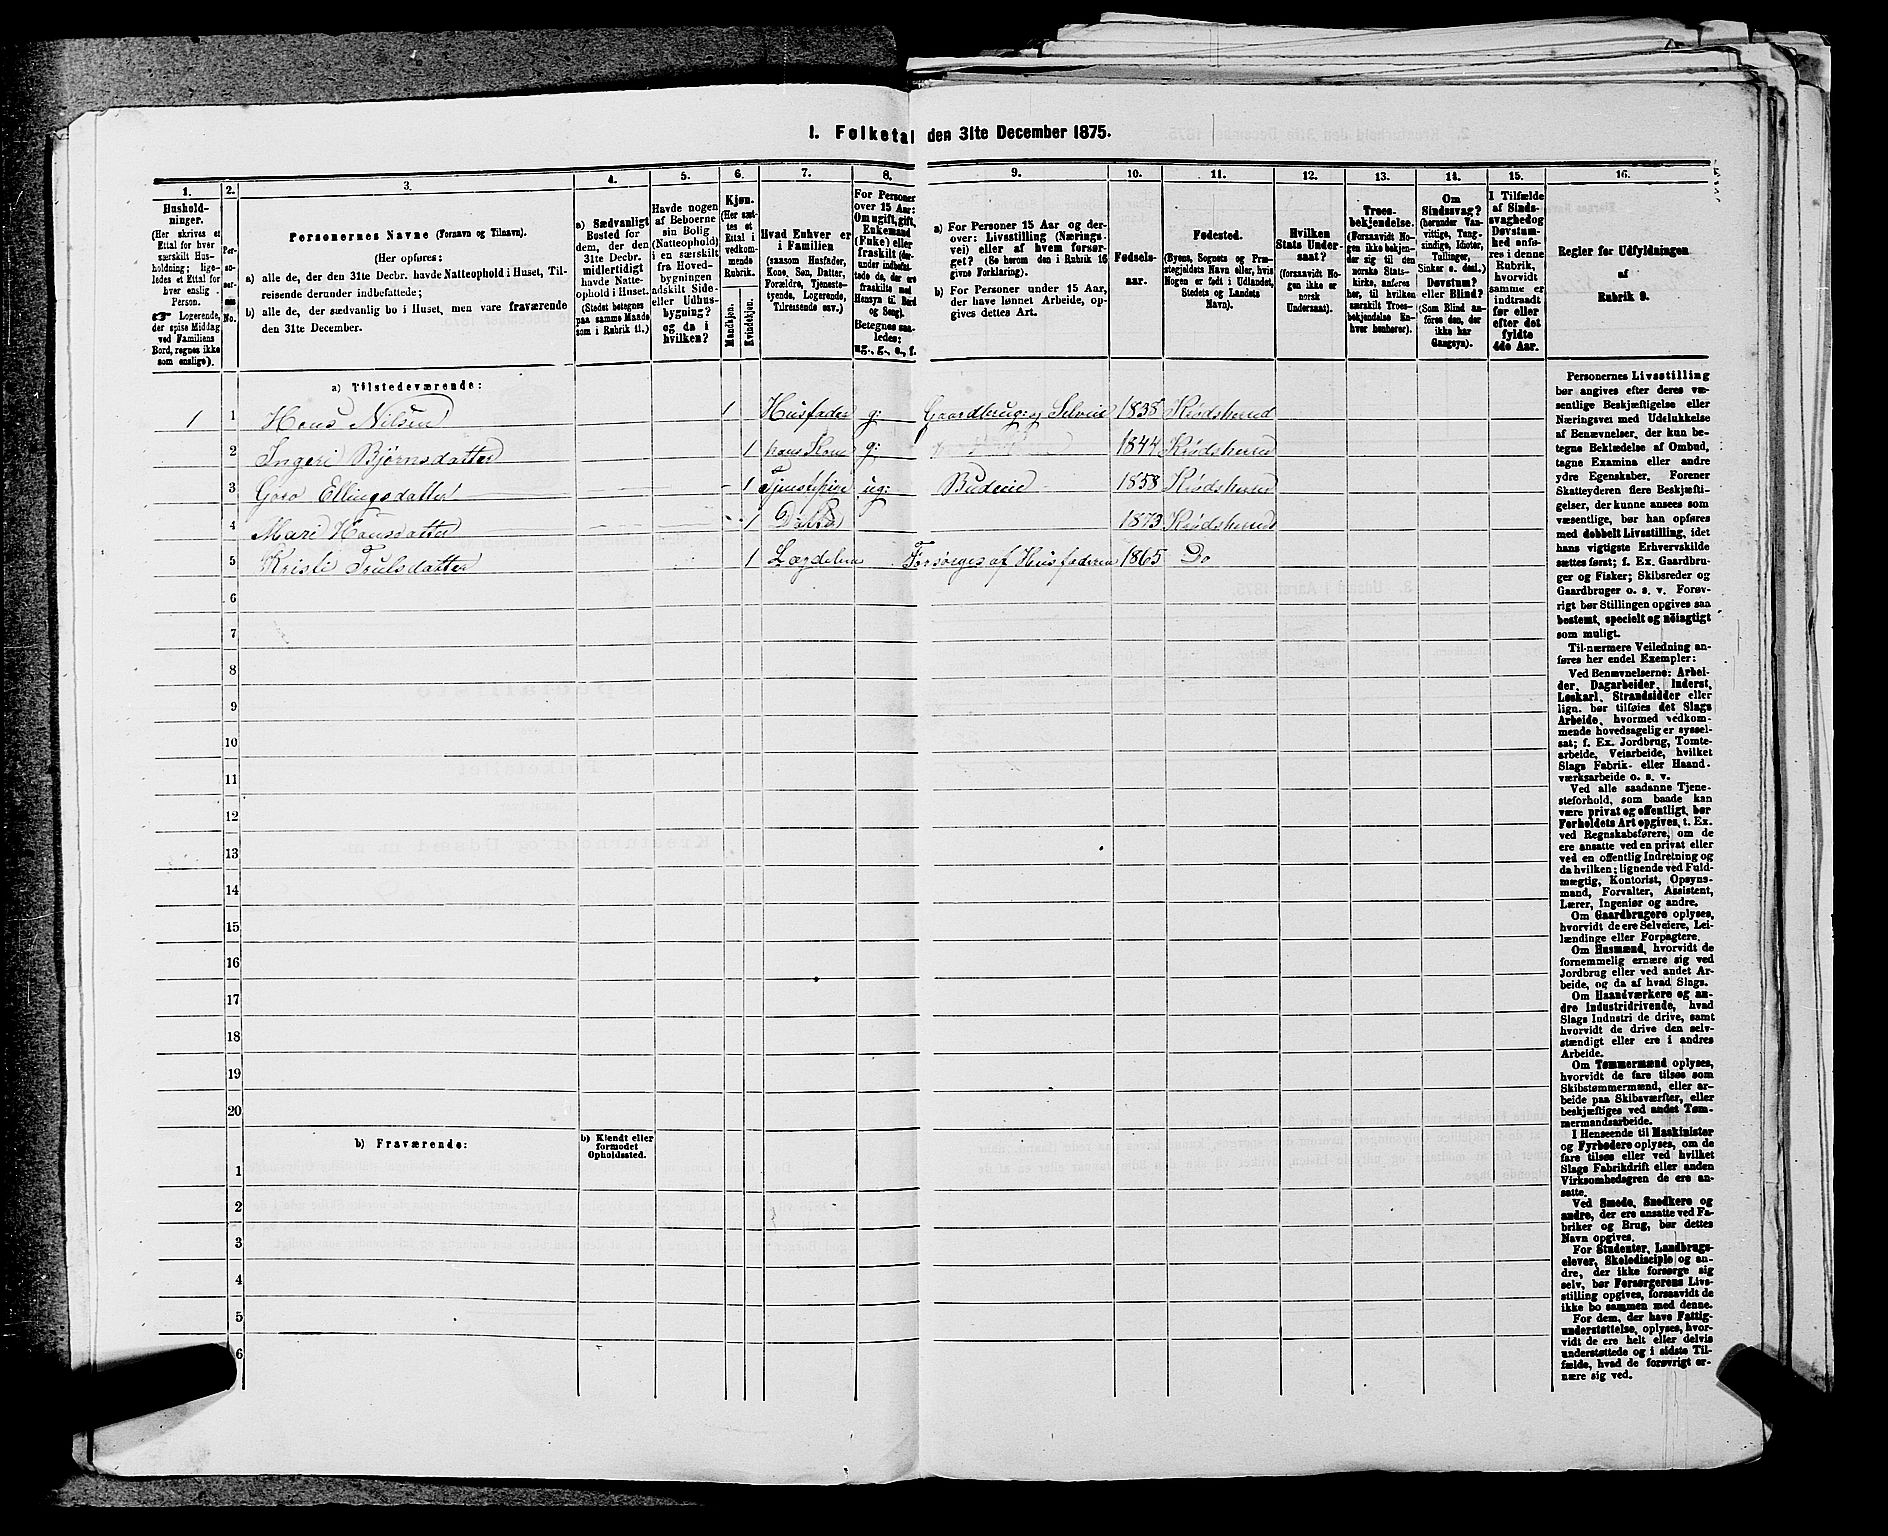 I. Folketal den 31te December 1875.
1. 2. 3. 4. 5. 6. 7. 8. 9. 10. 11. 12. 13. 14. 15. 16.
Husholdninger.
(Her skrives et
Ettal for hver
særskilt Husholdning; ligeledes
et Ettal for
hver enslig
Person.
☞ Logerende,
der spise Middag
ved Familiens
Bord, regnes ikke
som enslige).
Personernes No.
Personernes Navne (Fornavn og Tilnavn).
(Her opføres:
a) alle de, der den 31te Decbr. havde Natteophold i Huset, Tilreisende derunder indbefattede;
b) alle de, der sædvanlig bo i Huset, men vare fraværende
den 31te December.
a) Sædvanligt
Bosted for
dem, der den
31te Decbr.
midlertidigt
havde Natteophold i Huset.
(Stedet betegnes
paa samme Maade
som i Rubrik 11.)
Havde nogen
af Beboerne
sin Bolig
(Natteophold)
i en særskilt
fra Hovedbygningen
adskilt Side-
eller Udhusbygning?
og da i
hvilken?
Kjøn.
(Her sættes et
Ettal i
vedkommende
Rubrik.
Mandkjøn.
Kvindekjøn.
Hvad Enhver er
i Familien
(saasom Husfader,
Kone, Søn, Datter,
Forældre, Tjenestetyende, Logerende,
Tilreisende osv.)
For Personer
over 15 Aar:
Om ugift, gift,
Enkemand
(Enke) eller
fraskilt (derunder indbefattede da, der ere
fraskilte med
Hensyn til Bord
og Seng).
Betegnes saaledes:
ug., g., e., f.
a) For Personer 15 Aar og derover: Livsstilling (Næringsvei) eller af hvem forsørget? (Se herom den i Rubrik 16
givne Forklaring).
b) For Personer under 15 Aar,
der have lønnet Arbeide, opgives dettes Art.
Fødselsaar.
Fødested.
(Byens, Sognets og Præstegjeldets Navn eller, hvis
Nogen er født i Udlandet,
Stedets og Landets
Navn).
Hvilken
Stats Undersaat?
(forsaavidt Nogen ikke er
norsk
Undersaat).
Troesbekjendelse.
(Forsaavidt Nogen ikke bekjender sig til den
norske Statskirke, anføres
her, til hvilken
særskilt Troesbekjendelse Enhver henhører).
Om
Sindssvag?
(herunder Vanvittige, Tungsindige, Idioter,
Tullinger,
Sinker o. desl.)
Døvstum?
eller Blind?
(Som Blind anføres den, der
ikke har
Gangsyn).
I Tilfælde
af Sindssvaghed og
Døvstumhed anføres i denne
Rubrik,
hvorvidt
samme er
indtraadt
før eller
efter det
fyldte
4de Aar.
Regler for Udfyldningen
af
Rubrik 9.
a) Tilstedeværende:
1 1 Hans Nilsen 1 Husfader g: Gaardbrug: og Selveie 1838 Krødsherred
2 Ingeri Bjørnsdatter 1 hans Kone g: 1844 Krødsherred
3 Goro Ellingsdatter 1 Tjenestepige ug: Budeie 1858 Krødsherred
4 Mari Hansdatter 1 Datter 1873 Krødsherred
5 Kristi Trulsdatter 1 Lægdelem Forsørges af Husfaderen 1865 Do
6
7
8
9
10
11
12
13
14
15
16
17
18
19
20
b) Fraværende:
b) Kjendt eller
formodet
Opholdssted.
1
2
3
4
5
6
Personernes Livsstilling
bør angives efter deres væsentlige Beskjæftigelse eller
Næringsvei med Udelukkelse
af Benævnelser, der kun betegne Beklædelse af Ombud,
tagne Examina eller andre
ydre Egenskaber. Forener
Skatteyderen flere Beskjæftigelser, der kunne ansees som
væsentlige, bør han opføres
med dobbelt Livsstilling, idet
hans vigtigste Erhvervskilde
sættes først; f. Ex. Gaardbruger og Fisker; Skibsreder og
Gaardbruger o. s. v. Forøvrigt bør Stillingen opgives saa
bestemt, specielt og nøiagtigt
som muligt.
Til nærmere Veiledning anføres her endel Exempler:
Ved Benævnelserne: Arbeider, Dagarbeider, Inderst,
Løskarl, Strandsidder eller
lign. bør tilføies det Slags
Arbeide, hvormed vedkommende hovedsagelig er sysselsat; f. Ex. Jordbrug, Tomtearbeide, Veiarbeide, hvilket
Slags Fabrik- eller Haandværksarbeide o. s. v.
Ved alle saadanne Tjenesteforhold, som baade kan
være privat og offentligt, bør
Forholdets Art opgives, t. Ex.
ved Regnskabsførere, om de
ere ansatte ved en privat eller
ved en offentlig Indretning og
da hvilken; lignende ved Fuldmægtig, Kontorist, Opsynsmand, Forvalter, Assistent,
Lærer, Ingeniør og andre.
Om Gaardbrugere oplyses,
hvorvidt de ere Selveiere, Leilændinge eller Forpagtere.
Om Husmænd, hvorvidt de
fornemmelig ernære sig ved
Jordbrug eller ved andet Arbeide, og da af hvad Slags.
Om Haandværkere og andre Industridrivende, hvad
Slags Industri de drive, samt
hvorvidt de drive den selvstændigt eller ere i andres
Arbeide.
Om Tømmermænd oplyses,
hvorvidt de fare tilsøs som
Skibstømmermænd, eller arbeide paa Skibsværfter, eller
beskjæftiges ved andet Tømmermandsarbeide.
I Henseende til Maskinister
og Fyrbødere oplyses, om de
fare tilsøs eller ved hvilket
Slags Fabrikdrift eller anden
Virksomhedsgren de ere ansatte.
Ved Smede, Snedkere og
andre, der ere ansatte ved Fabriker og Brug, bør dettes
Navn opgives.
For Studenter, Landbrugselever, Skoledisciple og andre, der ikke forsørge sig
selv, bør Forsørgerens Livsstilling opgives, forsaavidt de
ikke bo sammen med denne.
For dem, der have Fattigunderstøttelse, oplyses, hvorvidt de ere helt eller delvis
understøttede og i sidste Tilfælde, hvad de forøvrigt ernære sig ved.